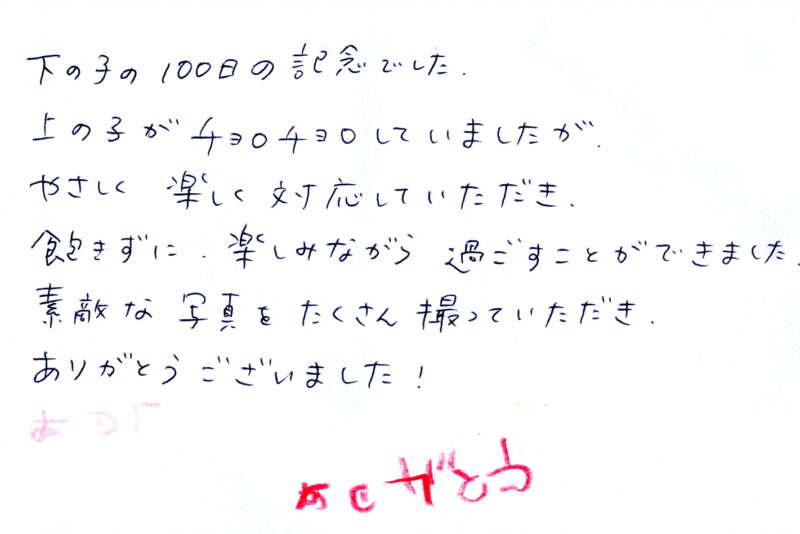 下の子の100日の記念でした.
上の子がチョロチョロしていましたが.
やさしく 楽しく 対応していただき.
飽きずに、楽しみながら 過ごすことができました.
素敵な 写真を たくさん 撮っていただき.
ありがとうございました!
ありがとう